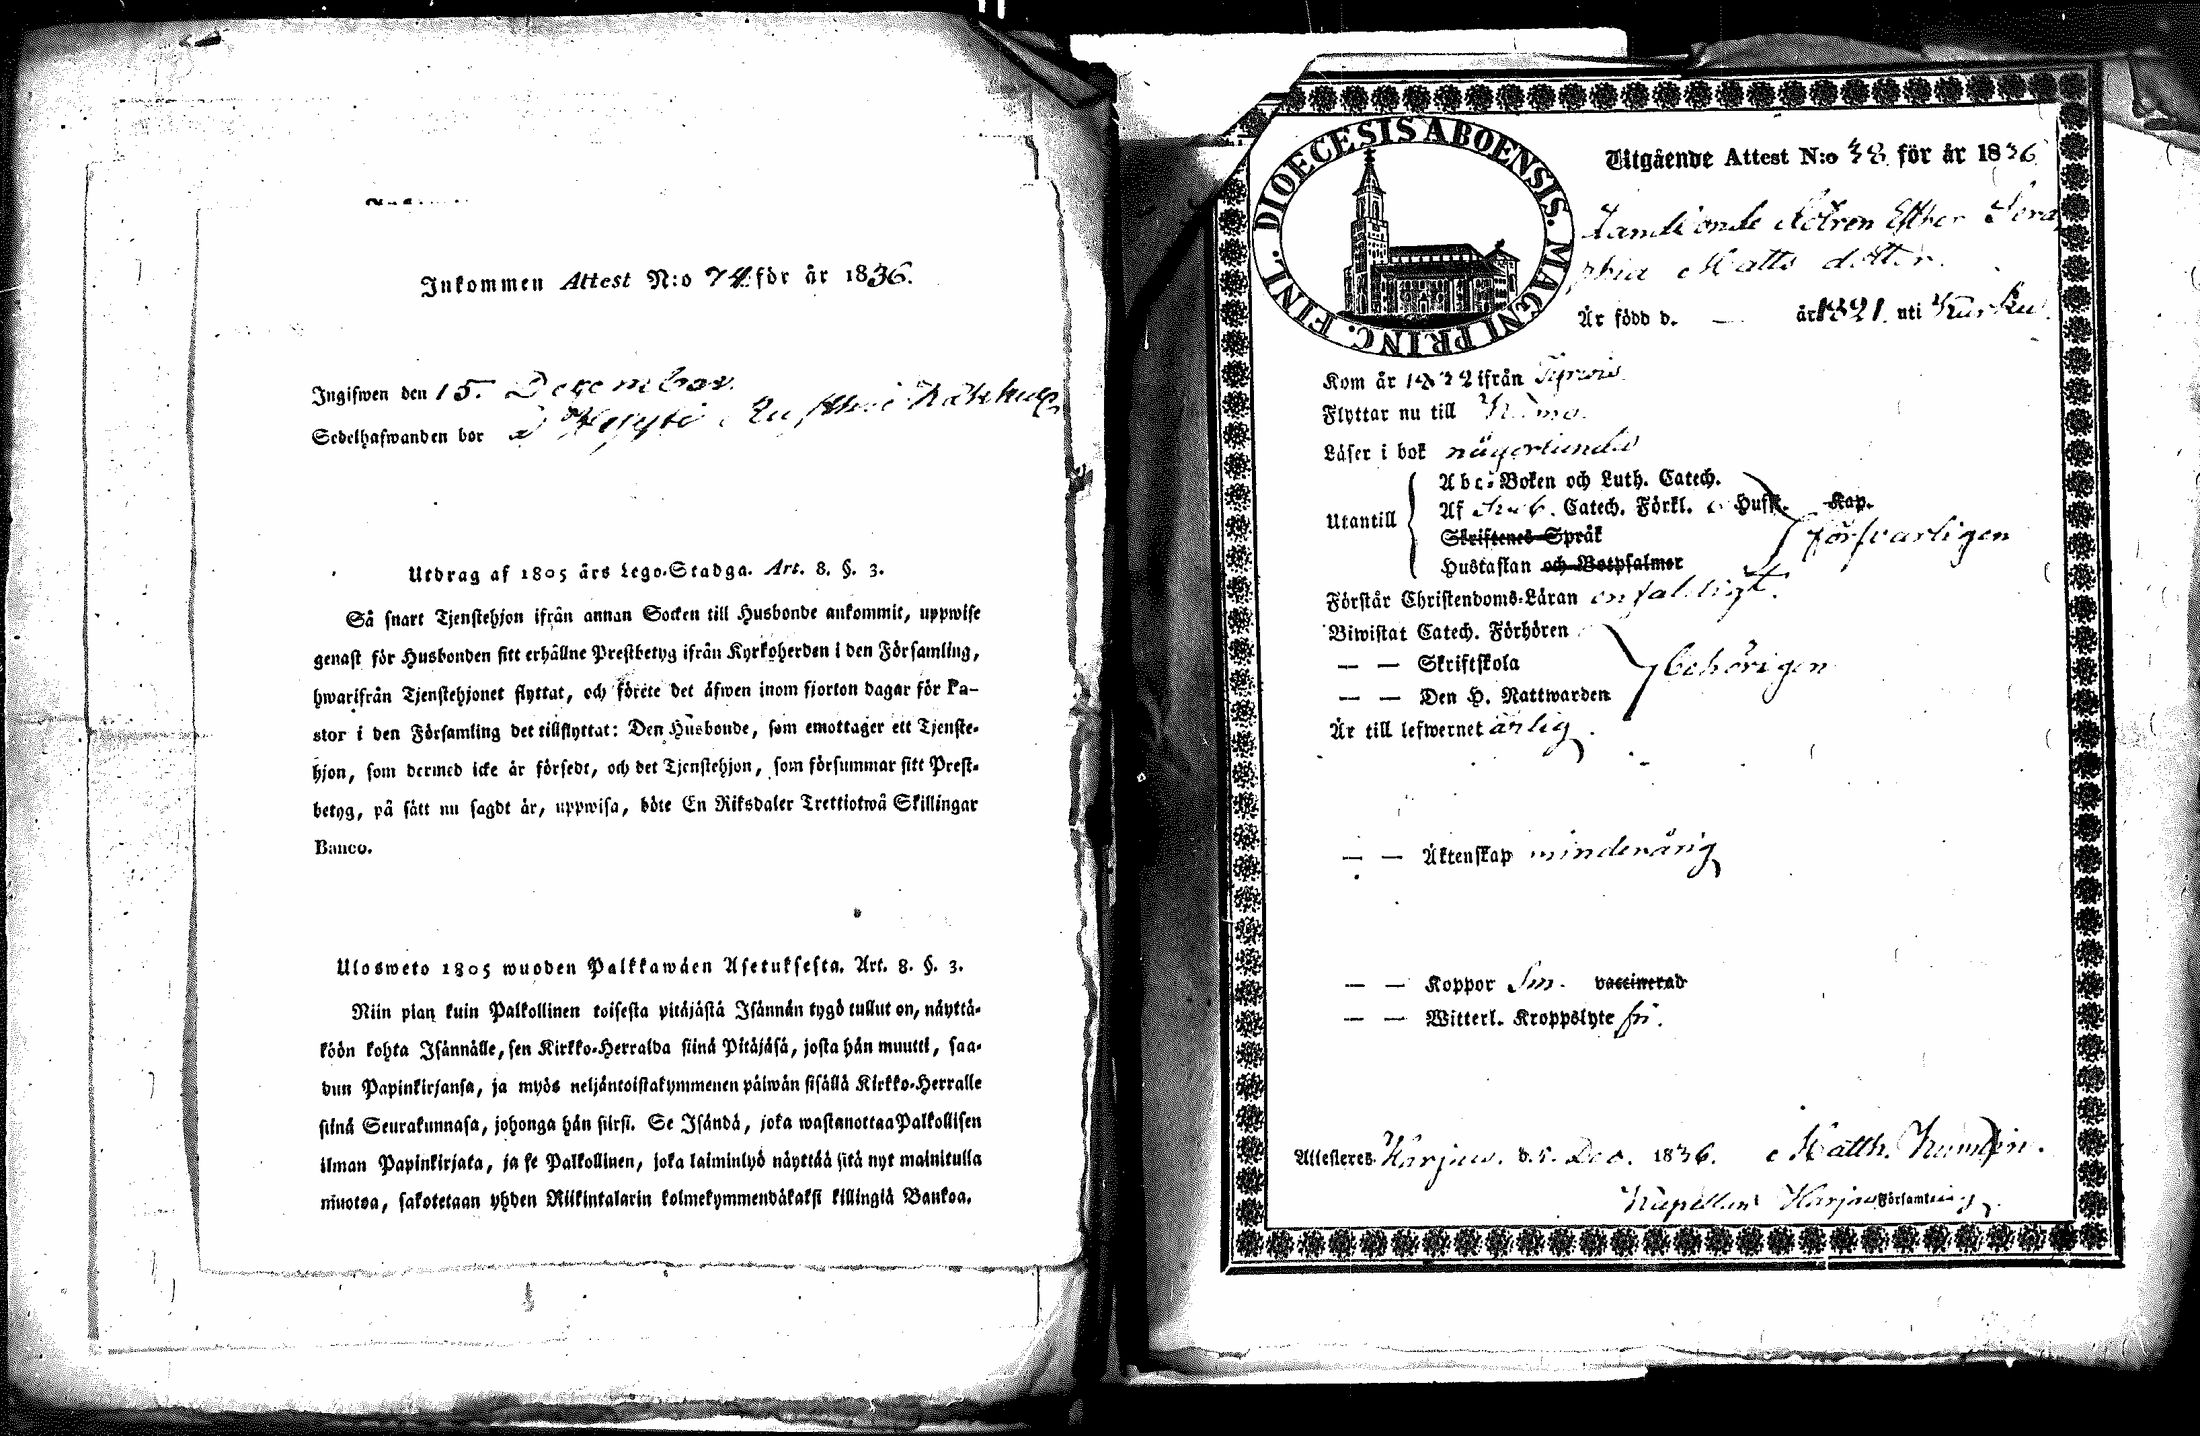 Inkommen Attest N:o 74. för år 1836.
Ingifwen den 15. December
Sedelhafwanden bor
Utdrag af 1805 års Lego-Stadga. Art. 8. §. 3.
Så snart Tjenstehjon ifrån annan Socken till Husbonde ankommit, uppwise
genast för Husbonden sitt erhållne Prestbetyg ifrån Kyrkoherden i den Församling,
hwarifrån Tjenstehjonet flyttat, och förete det äfwen inom fjorton dagar för Pa-
stor i den Församling det tillflyttat: Den Husbonde, som emottager ett Tjenste-
hjon, som dermed icke är försedt, och det Tjenstehjon, som försummar sitt Prest-
betyg, på sätt nu sagdt är, uppwisa, böte En Riksdaler Trettiotwå Skillingar
Banco.
Ulosweto 1805 wuoden Palkkawäen Asetuksesta. Art. 8. §. 3.
Niin pian kuin Palkollinen toisesta pitäjästä Isännän tygö tullut on, näyttä-
köön kohta Isännälle, sen Kirkko-Herralda siinä Pitäjäsä, josta hän muutti, saa-
dun Papinkirjansa, ja myös neljäntoistakymmenen päiwän sisällä Kirkko-Herralle
siinä Seurakunnasa, johonga hän siirsi. Se Isändä, joka wastanottaa Palkollisen
ilman Papinkirjata, ja se Palkollinen, joka laiminlyö näyttää sitä nyt mainitulla
muotoa, sakotetaan yhden Riikintalarin kolmekymmendäkaksi killingiä Bankoa.
DIOECESIS ABOENSIS. MAGNI PRINC. FINL.
Utgående Attest N:o 38 för år 1836
Esther Sera
phia Matts dotter
Är född d. — år 1821 uti
Kom år 1832 ifrån Tyrvis
Flyttar nu till Kumo.
Läser i bok någorlunda
Abc-Boken och Luth. Catech.
Utantill Af Sveb. Catech. Förkl. Husk. Kap.
försvarligen
Skriftenes Språk
Hustaflan och Botpsalmer
Förstår Christendoms-Läran enfaldigt.
Biwistat Catech. Förhören
— — Skriftskola behörigen
— — Den H. Nattwarden
Är till lefwernet ärlig.
— — Äktenskap minderårig
— — Koppor vaccinerad
— — Witterl. Kroppslyte fri.
Attesteres Karjau. d. 5. Dec. 1836. Matth.
Kapellan i Karjau Församling